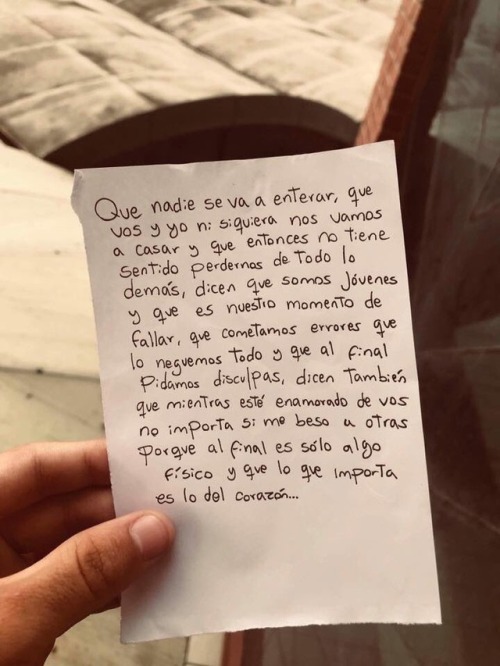 Que nadie se va a enterar, que
vos y yo ni siquiera nos vamos
a casar y que entonces no tiene
sentido perdernos de todo lo
demás, dicen que somos jóvenes
y que es nuestro momento de
fallar, que cometamos errores que
lo neguemos todo y que al final
pidamos disculpas, dicen también
que mientras esté enamorado de vos
no importa si me beso a otras
porque al final es sólo algo
físico y que lo que importa
es lo del corazón...